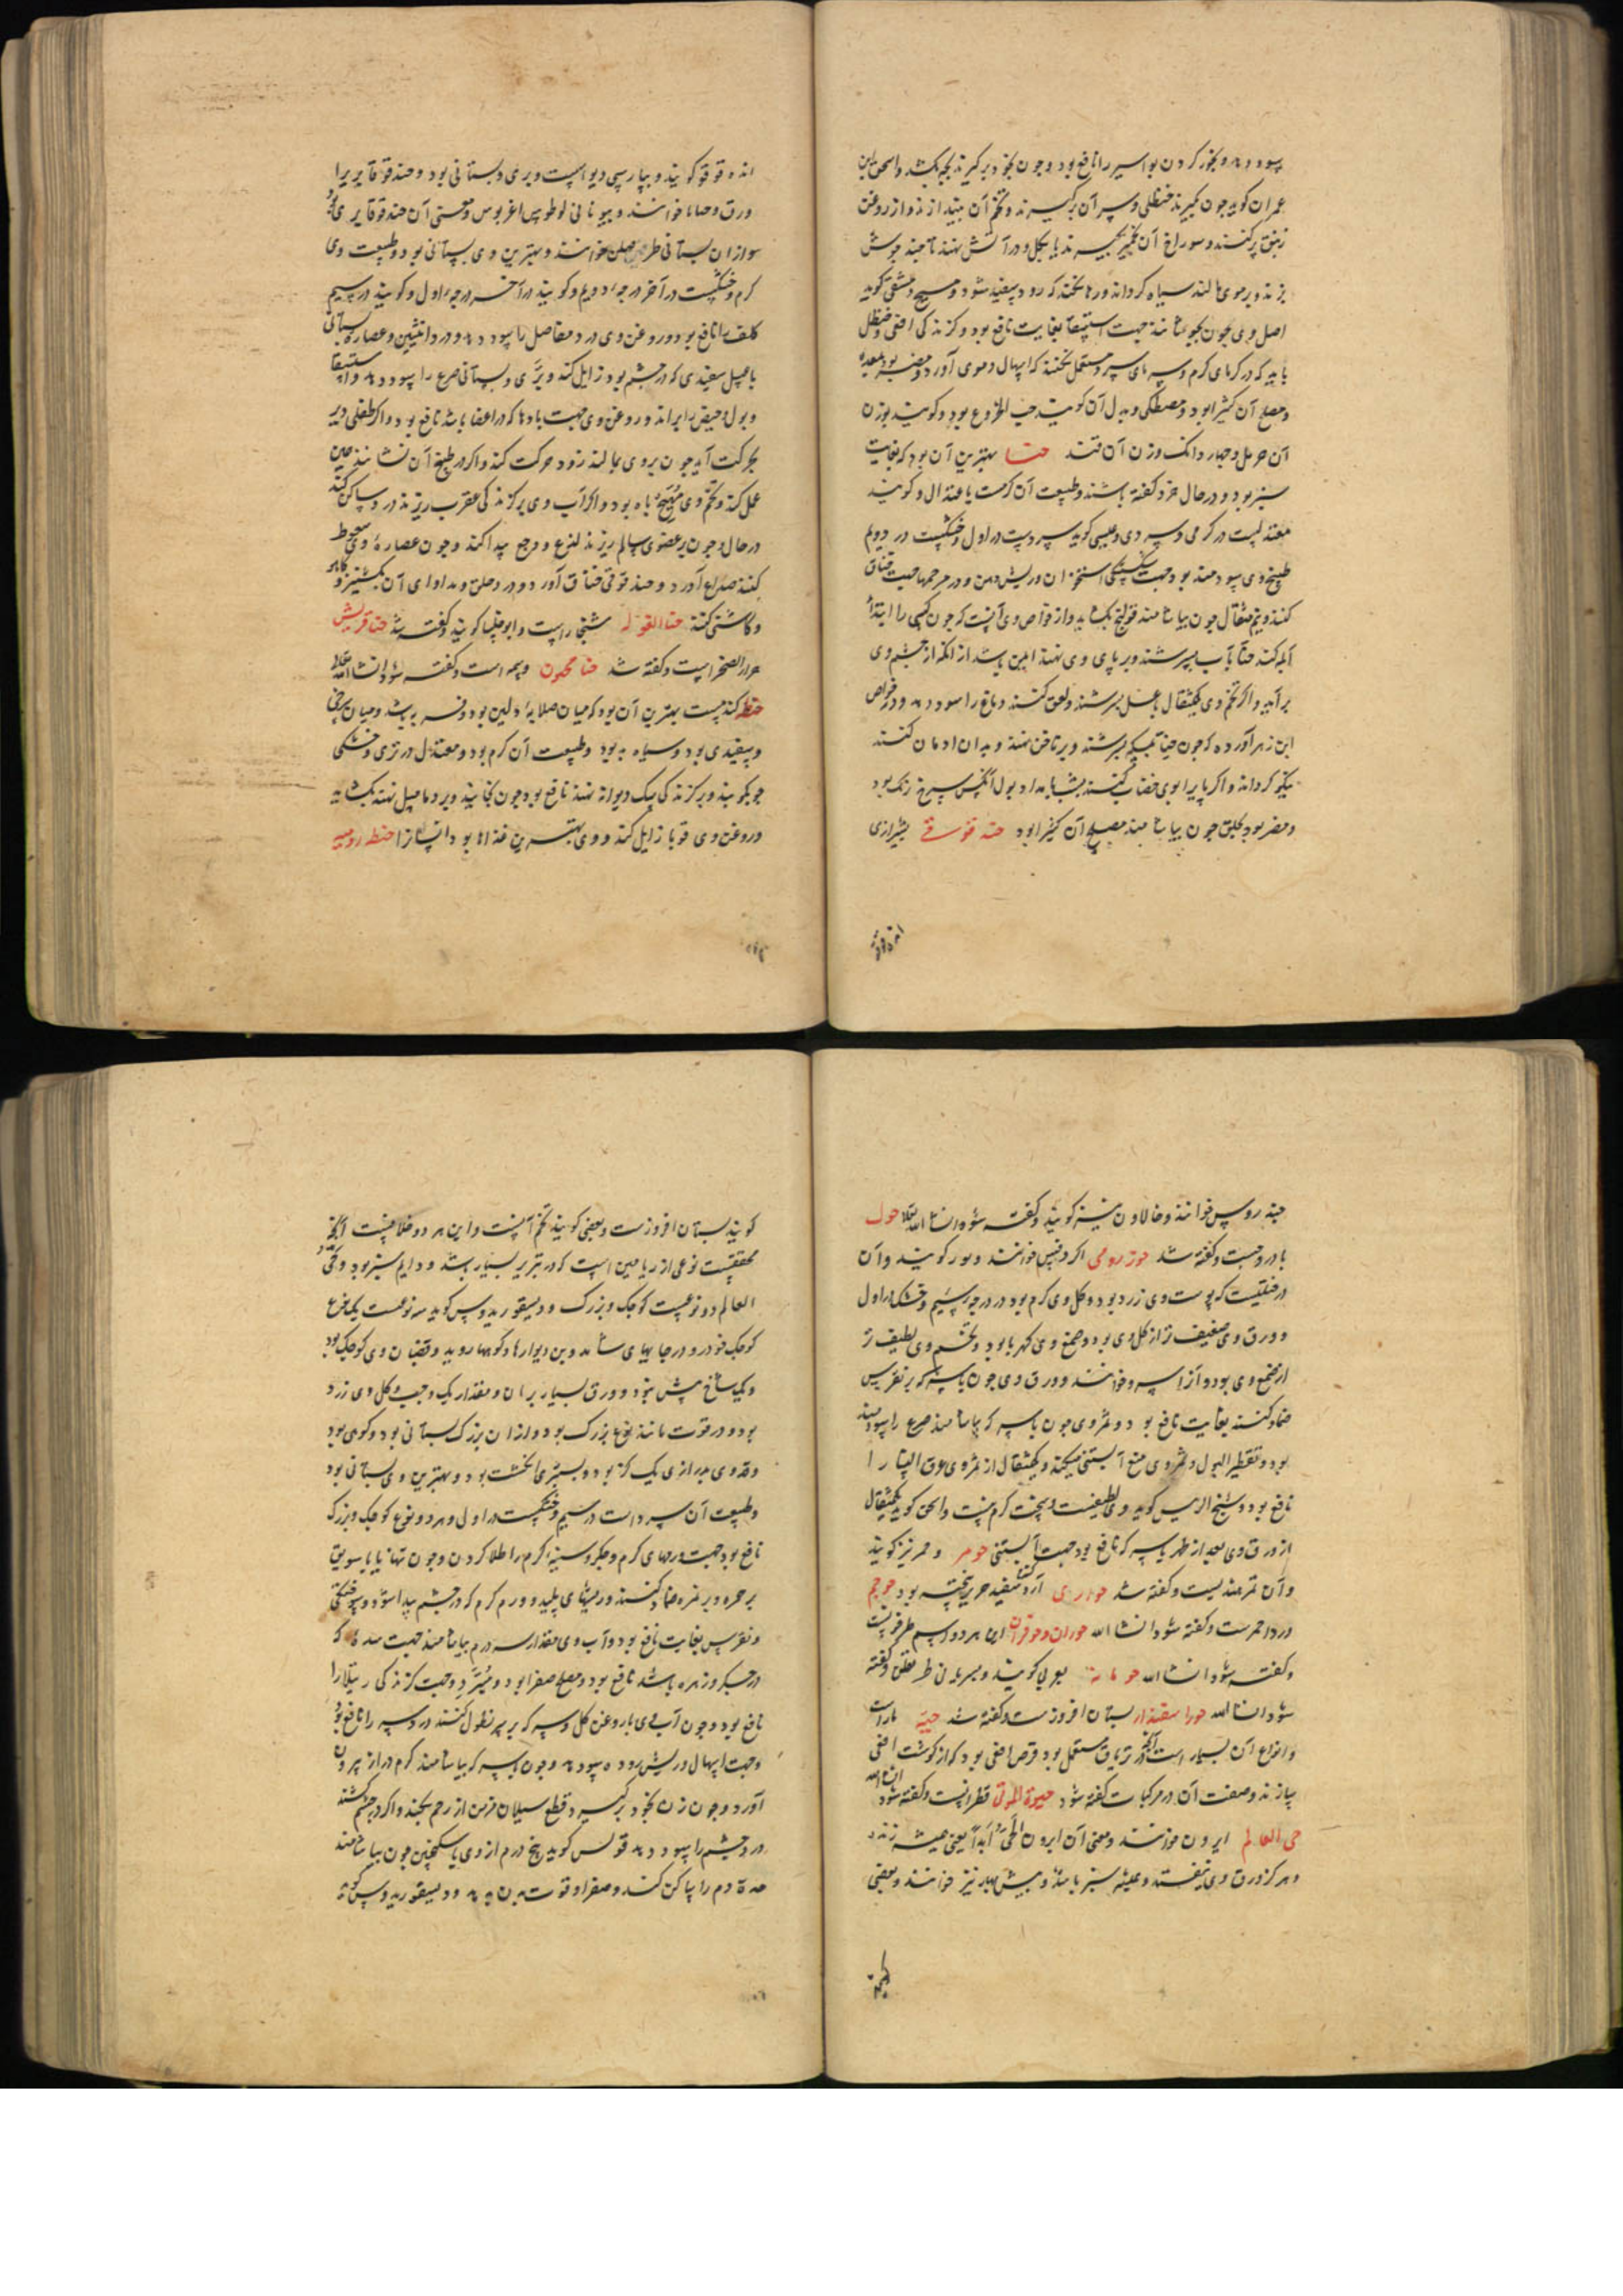 سود دهد و بخور کردن بواسیر را نافع بود و چون بخود برگیرند بچه بکشد و اسحق ابن
عمران گوید چون گیرند حنظلی و سر آن برگیرند و تخم آن بیندازند و از روغن
زنبق پر کنند و سوراخ آن بخمیر گیرند یا بگل و در آتش نهند تا چند جوش
بزند و بر موی مالند سیاه گرداند و رها نکند که زود سفید شود و مسیح دمشقی گوید
اصل وی چون بجوشانند جهت استسقا بغایت نافع بود و گزندگی افعی و حنظل
باید که در گرمای گرم و سرمای سرد مستعمل نکنند که اسهال دموی آورد و مضر بود بمعده
و مصلح آن کثیرا بود و مصطکی و بدل آن گویند حب الخروع بود و گویند بوزن
آن حرمل و چهار دانگ وزن آن قند حنا بهترین آن بود که بغایت
سبز بود و در حال خرد کفته باشند و طبیعت آن گرمست باعتدال و گویند
معتدلست در گرمی و سردی و عیسی گوید سردست در اول و خشکست در دویم
طبیخ وی سودمند بود جهت سوختگی آتش و ریش دهن و در مرهمها جهت خناق
کنند و نیم مثقال چون بیاشامند قولنج بکشاید و از خواص وی آنست که چون کسی را ابتداء
آبله کند حنا بآب بسرشند و بر پای وی نهند ایمن باشد از آنکه از چشم وی
برآید و اگر تخم وی یکمثقال بعسل بسرشند و لعق کنند دماغ را سود دهد و در خواص
ابن زهر آورده که چون حنا بسرکه بسرشند و بر ناخن نهند و بدان ادمان کنند
نیکو گرداند و اگر پایرا بوی خضاب کنند بشب بامداد بول آنکس سرخ رنگ بود
و مضر بود بحلق چون بیاشامند مصلح آن کثیرا بود حندقوقی بشیرازی
انده قوقو گویند و بپارسی دیو اسپست و بری و بستانی بود و حندقوقا بریرا
ذرق و حباقا خوانند و بیونانی لوطوس اغریوس و معنی آن حندقوقا بری بود
سوازان بستانی طریفلن خوانند و بهترین وی بستانی بود و طبیعت وی
گرم و خشکست در آخر درجهٔ دویم و گویند در آخر درجهٔ اول و گویند در سیم
کلف را نافع بود و روغن وی درد مفاصل را سود دهد و درد انثیین و عصارهٔ بستانی
با عسل سفیدی که در چشم بود زایل کند و برّی و بستانی صرع را سود دهد و استسقا
و بول و حیض براند و روغن وی جهت بادها که در اعضا باشد نافع بود و اگر طفلی دیر
بحرکت آید چون بر وی بمالند زود حرکت کند و اگر در طبیخ آن نشانند همین
عمل کند و تخم وی مُهَیّج باه بود و اگر آب وی بر گزندگی عقرب ریزند درد ساکن کند
در حال و چون بر عضوی سالم ریزند لذع و وجع پیدا کند و چون عصارهٔ وی سعوط
کنند صداع آورد و حندقوقی خناق آورد و درد حلق و مداوای آن بگشنیز و کاهو
و کاسنی کنند حنا الغوله شنجار است و ابوخلسا گویند و گفته شد حنا قریش
حرار الصخر است و گفته شد حنا مجنون وسمه است و گفته شود انشاالله تعالی
حنطه گندمست بهترین آن بود که میان صلابه و لین بود و فربه باشد و میان سرخی
و سفیدی بود و سیاه بد بود و طبیعت آن گرم بود و معتدل در تری و خشکی
چو بکوبند و بر گزندگی سگ دیوانه نهند نافع بود چون بخایند و بر دمامیل نهند بکشاید
و روغن وی قوبا زایل کند و وی بهترین غذاها بود انسانرا حنطه رومیه
خندروس خوانند و خالاون نیز گویند و گفته شود انشاالله تعالی حوک
بادروجست و گفته شد حور رومی اگر وقیس خوانند و بور گویند و آن
درختیست که پوست وی زرد بود و گل وی گرم بود در درجهٔ سیم و خشک در اول
و ورق وی ضعیف تر از گل وی بود و صمغ وی کهربا بود و تخم وی لطیف تر
از صمغ وی بود و آنرا سرو خوانند و ورق وی چون با سرکه بر نقرس
ضماد کنند بغایت نافع بود و ثمر وی چون با سرکه بیاشامند صرع را سودمند
بود و تقطیر البول و ثمر وی منع آبستنی میکند و یکمثقال از ثمر وی عرق النسا را
نافع بود و شیخ الرییس گوید وی لطیفست و سخت گرم نیست و اسحق گوید یکمثقال
از ورق وی بعد از طهر با سرکه نافع بود جهت آبستنی حومر و حمر نیز گویند
و آن تمر هندیست و گفته شد حواری آرد گندم سفید حریر بیخته بود حوجم
ورد احمرست و گفته شود انشاالله حوران و حوقران این هر دو اسم طرخونست
و گفته شود انشاالله حومانه بعربی گویند و بسریانی طریفلن و گفته
شود انشاالله حورا سفندار بستان افروزست و گفته شد حیّه مار است
و انواع آن بسیار است و آنچه در تریاق مستعمل بود قرص افعی بود که از گوشت افعی
سازند و صفت آن در مرکبات گفته شود حیوة الموتی قطرانست و گفته شود انشاالله
حی العالم ابرون خوانند و معنی آن ابرون الحَیّ اَبَداً یعنی همیشه زنده
و هرگز ورق وی نیفتد و همیشه سبز باشد و همیش بهار نیز خوانند و بعضی
گویند بستان افروزست و بعضی گویند تخم آنست و این هر دو خلافست آنچه
محققست نوعی از ریاحین است که در تبریز بسیار باشد و دایم سبز بود و حی
العالم دو نوعست کوچک و بزرگ و دیسقوریدوس گوید سه نوعست یکنوع
کوچک خودرو در جایهای سایه و بن دیوارها و کوهها روید و قضبان وی کوچک بود
و یک شاخ بیش نبود و ورق بسیار بر آن و مقدار یک وجب و گل وی زرد
بود و در قوت مانند نوع بزرگ بود و از آن بزرگ بستانی بود و کوهی بود
و قد وی بدرازی یک گز بود و بسبری انگشت بود و بهترین وی بستانی بود
و طبیعت آن سرد است در سیم و خشکست در اولی و هر دو نوع کوچک و بزرگ
نافع بود جهت ورمهای گرم و جگر و سینهٔ گرم را طلا کردن و چون تنها یا با سویق
بر حمره و بر نمره ضماد کنند و ریشهای پلید و ورم گرم که در چشم پیدا شود و سوختگی
و نقرس بغایت نافع بود و آب وی مقدار سه درم بیاشامند جهت سده که
در جگر و زهره باشد نافع بود و مصلح صفرا بود و مُبَرِّد و جهت گزندگی رتیلا را
نافع بود و چون آب وی با روغن گل و سرکه بر سر نطول کنند درد سر را نافع بود
و جهت اسهال و ریش روده سود دهد و چون با سرکه بیاشامند کرم دراز بیرون
آورد و چون زن بخود برگیرد قطع سیلان مزمن از رحم بکند و اگر در چشم کشند
درد چشم را سود دهد و قولس گوید پنج درم از وی با سکنجبین چون بیاشامند
حدة دم را ساکن کند و صفرا و قوت بدن بدهد و دیسقوریدوس گوید